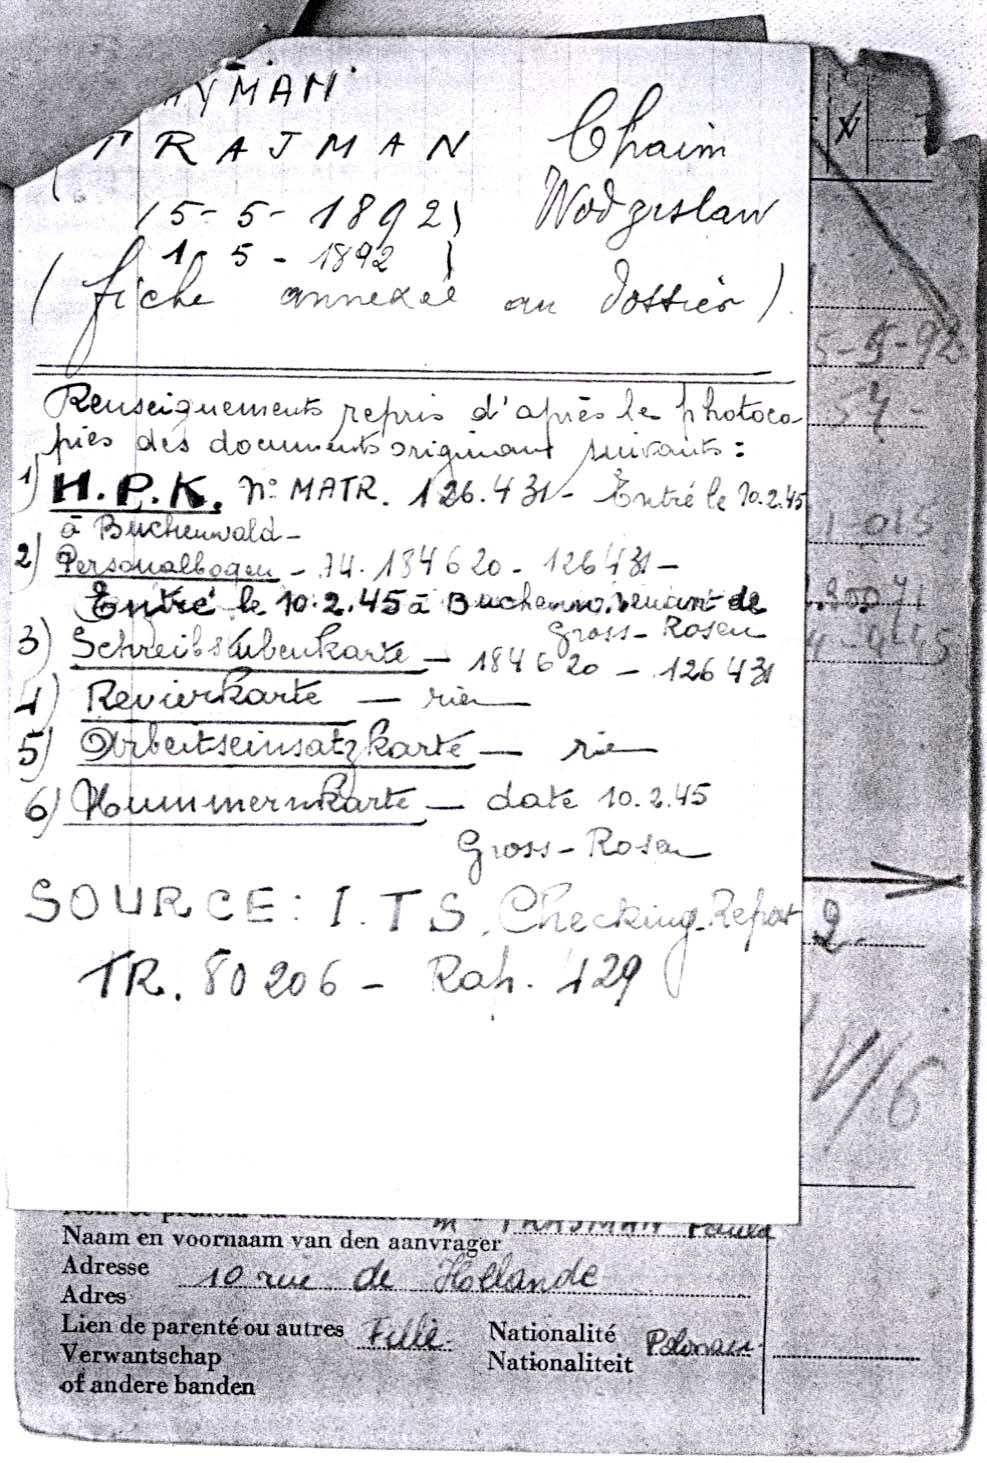 AYMAN
TRAJMAN Chaim
15-5-1892) Wodzislaw
1 5 - 1892 )
(fiche annexée au dossier)
Renseignements repris d'après les photoco-
pies des documents originaux suivants :
1) H.P.K. N° MATR. 126.431 - Entré le 10.2.45
à Buchenwald -
2) Personalbogen - 74. 184620 - 126431 -
Entré le 10.2.45 à Buchenw. venant de
Gross-Rosen
3) Schreibstubenkarte - 184620 - 126431
4) Revierkarte - rien
5) Arbeitseinsatzkarte - rien
6) Nummernkarte - date 10.2.45
Gross-Rosen
SOURCE : I.T.S. Checking Report
TR. 50206 - Rah. 129
5-5-92
54-
1-015
4-4-45
2
V/6
TRAJMAN Paula
Naam en voornaam van den aanvrager
Adresse 10 rue de Hollande
Adres
Lien de parenté ou autres Fille. Nationalité Polonais
Verwantschap Nationaliteit
of andere banden